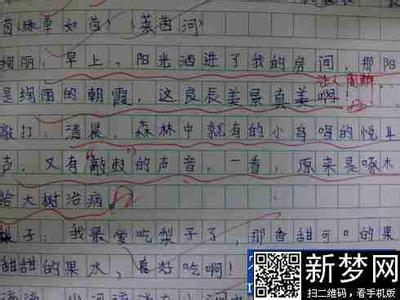 茵绿草如茵)(莱茵河)
绚丽:早上,阳光洒进了我的房间,那阳
是绚丽的朝霞,这良辰美景真美啊!
敲打:清晨,森林中就有的小鸟唱的悦耳
声,又有"敲鼓"的声音,一看,原来是啄木
给大树治病
梨子:我最爱吃梨子了,那香甜可口的果
甜甜的果水,真好吃啊!
新梦网
扫二维码,看手机版